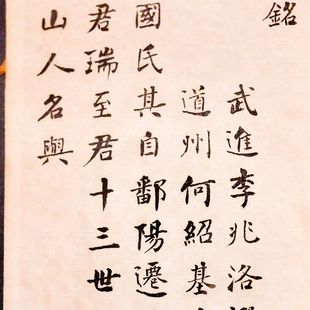 銘
武進李兆洛譔
道州何紹基
國氏其自鄱陽遷
君瑞至君十三世
山人名與